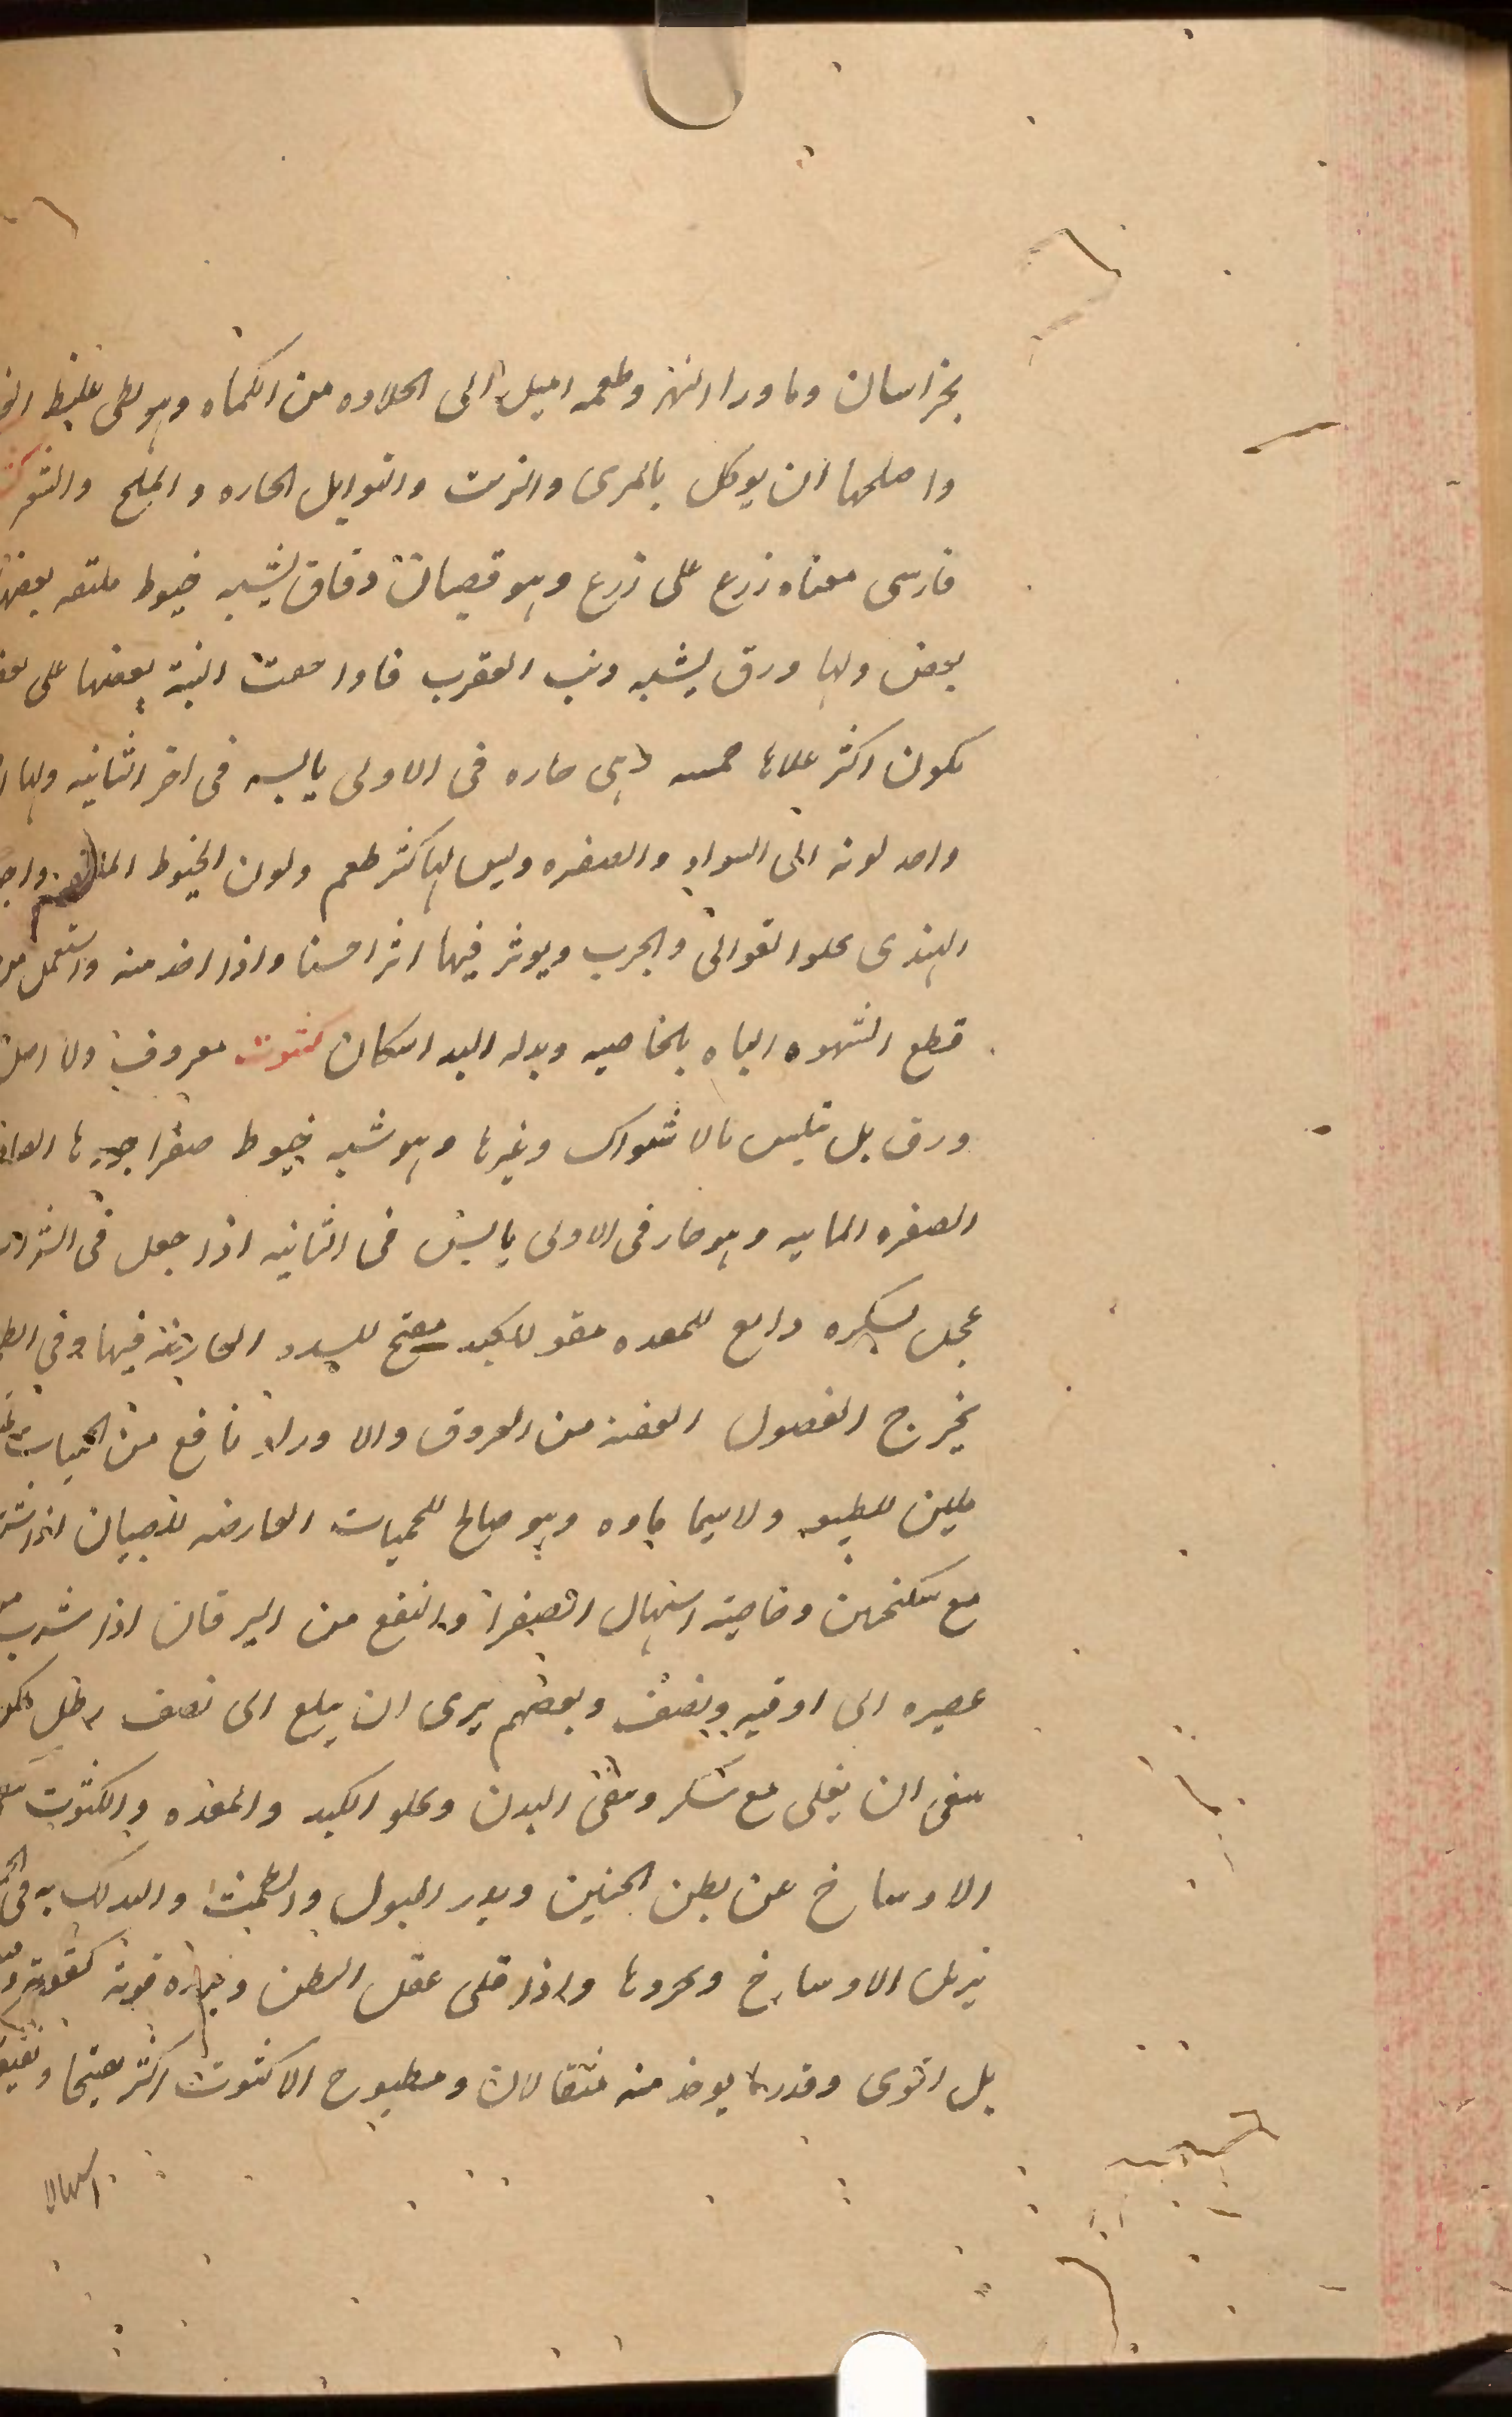 بخراسان وماورا النهر وطعمه اميل الى الحلاوه من الكماه وهو بطى غليظ
واصلحها ان يوكل بالمرى والزيت والتوابل الحاره والملح
فارسى معناه زرع على زرع وهو قضبان دقاق يشبه خيوط ملتفه بعضها
بعض ولها ورق يشبه ذنب العقرب فاذا جمعت النبة بعضها على
يكون اكثر غلاها خمسه وهى حاره فى الاولى يابسه فى اخر الثانيه ولها
واحد لونه الى السواد والصفره وليس لها كثر طعم ولون الخيوط
الهندى يجلوا القوابى والجرب ويوثر فيها اثرا حسنا واذا اخذ منه واستعمل
قطع الشهوه الباه بالخاصيه وبدله البداسكان كشوث معروف ولا اصل
ورق بل تلبس بالاشواك وغيرها وهو شبه خيوط صفرا
الصفره المايه وهو حار فى الاولى يابس فى الثانيه اذا جعل فى الشراب
عجل بسكره دابغ للمعده مقو للكبد مفتح للسدد العارضه فيها وفى
يخرج الفصول العفنه من العروق والاوراد نافع من الحميات
ملين للطبع ولاسيما ماوه وهو صالح للحميات العارضه للصبيان اذا
مع سكنجبين وخاصيته اسهال الصفرا وانفع من اليرقان اذا شرب
عصيره الى اوقيه ونصف وبعضهم يرى ان يبلع الى نصف رطل
ينبغى ان يغلى مع سكر وينقى البدن ويجلو الكبد والمعده والكشوث
الاوساخ عن بطن الجنين ويدر البول والطمث والدلك به فى
يزيل الاوساخ ويحروها واذا قلى عقل البطن وبزره قوته كقوته
بل اقوى وقدر ما يوخذ منه مثقالان ومطبوخ الاكشوث اكثر تفتيحا
اسهالا